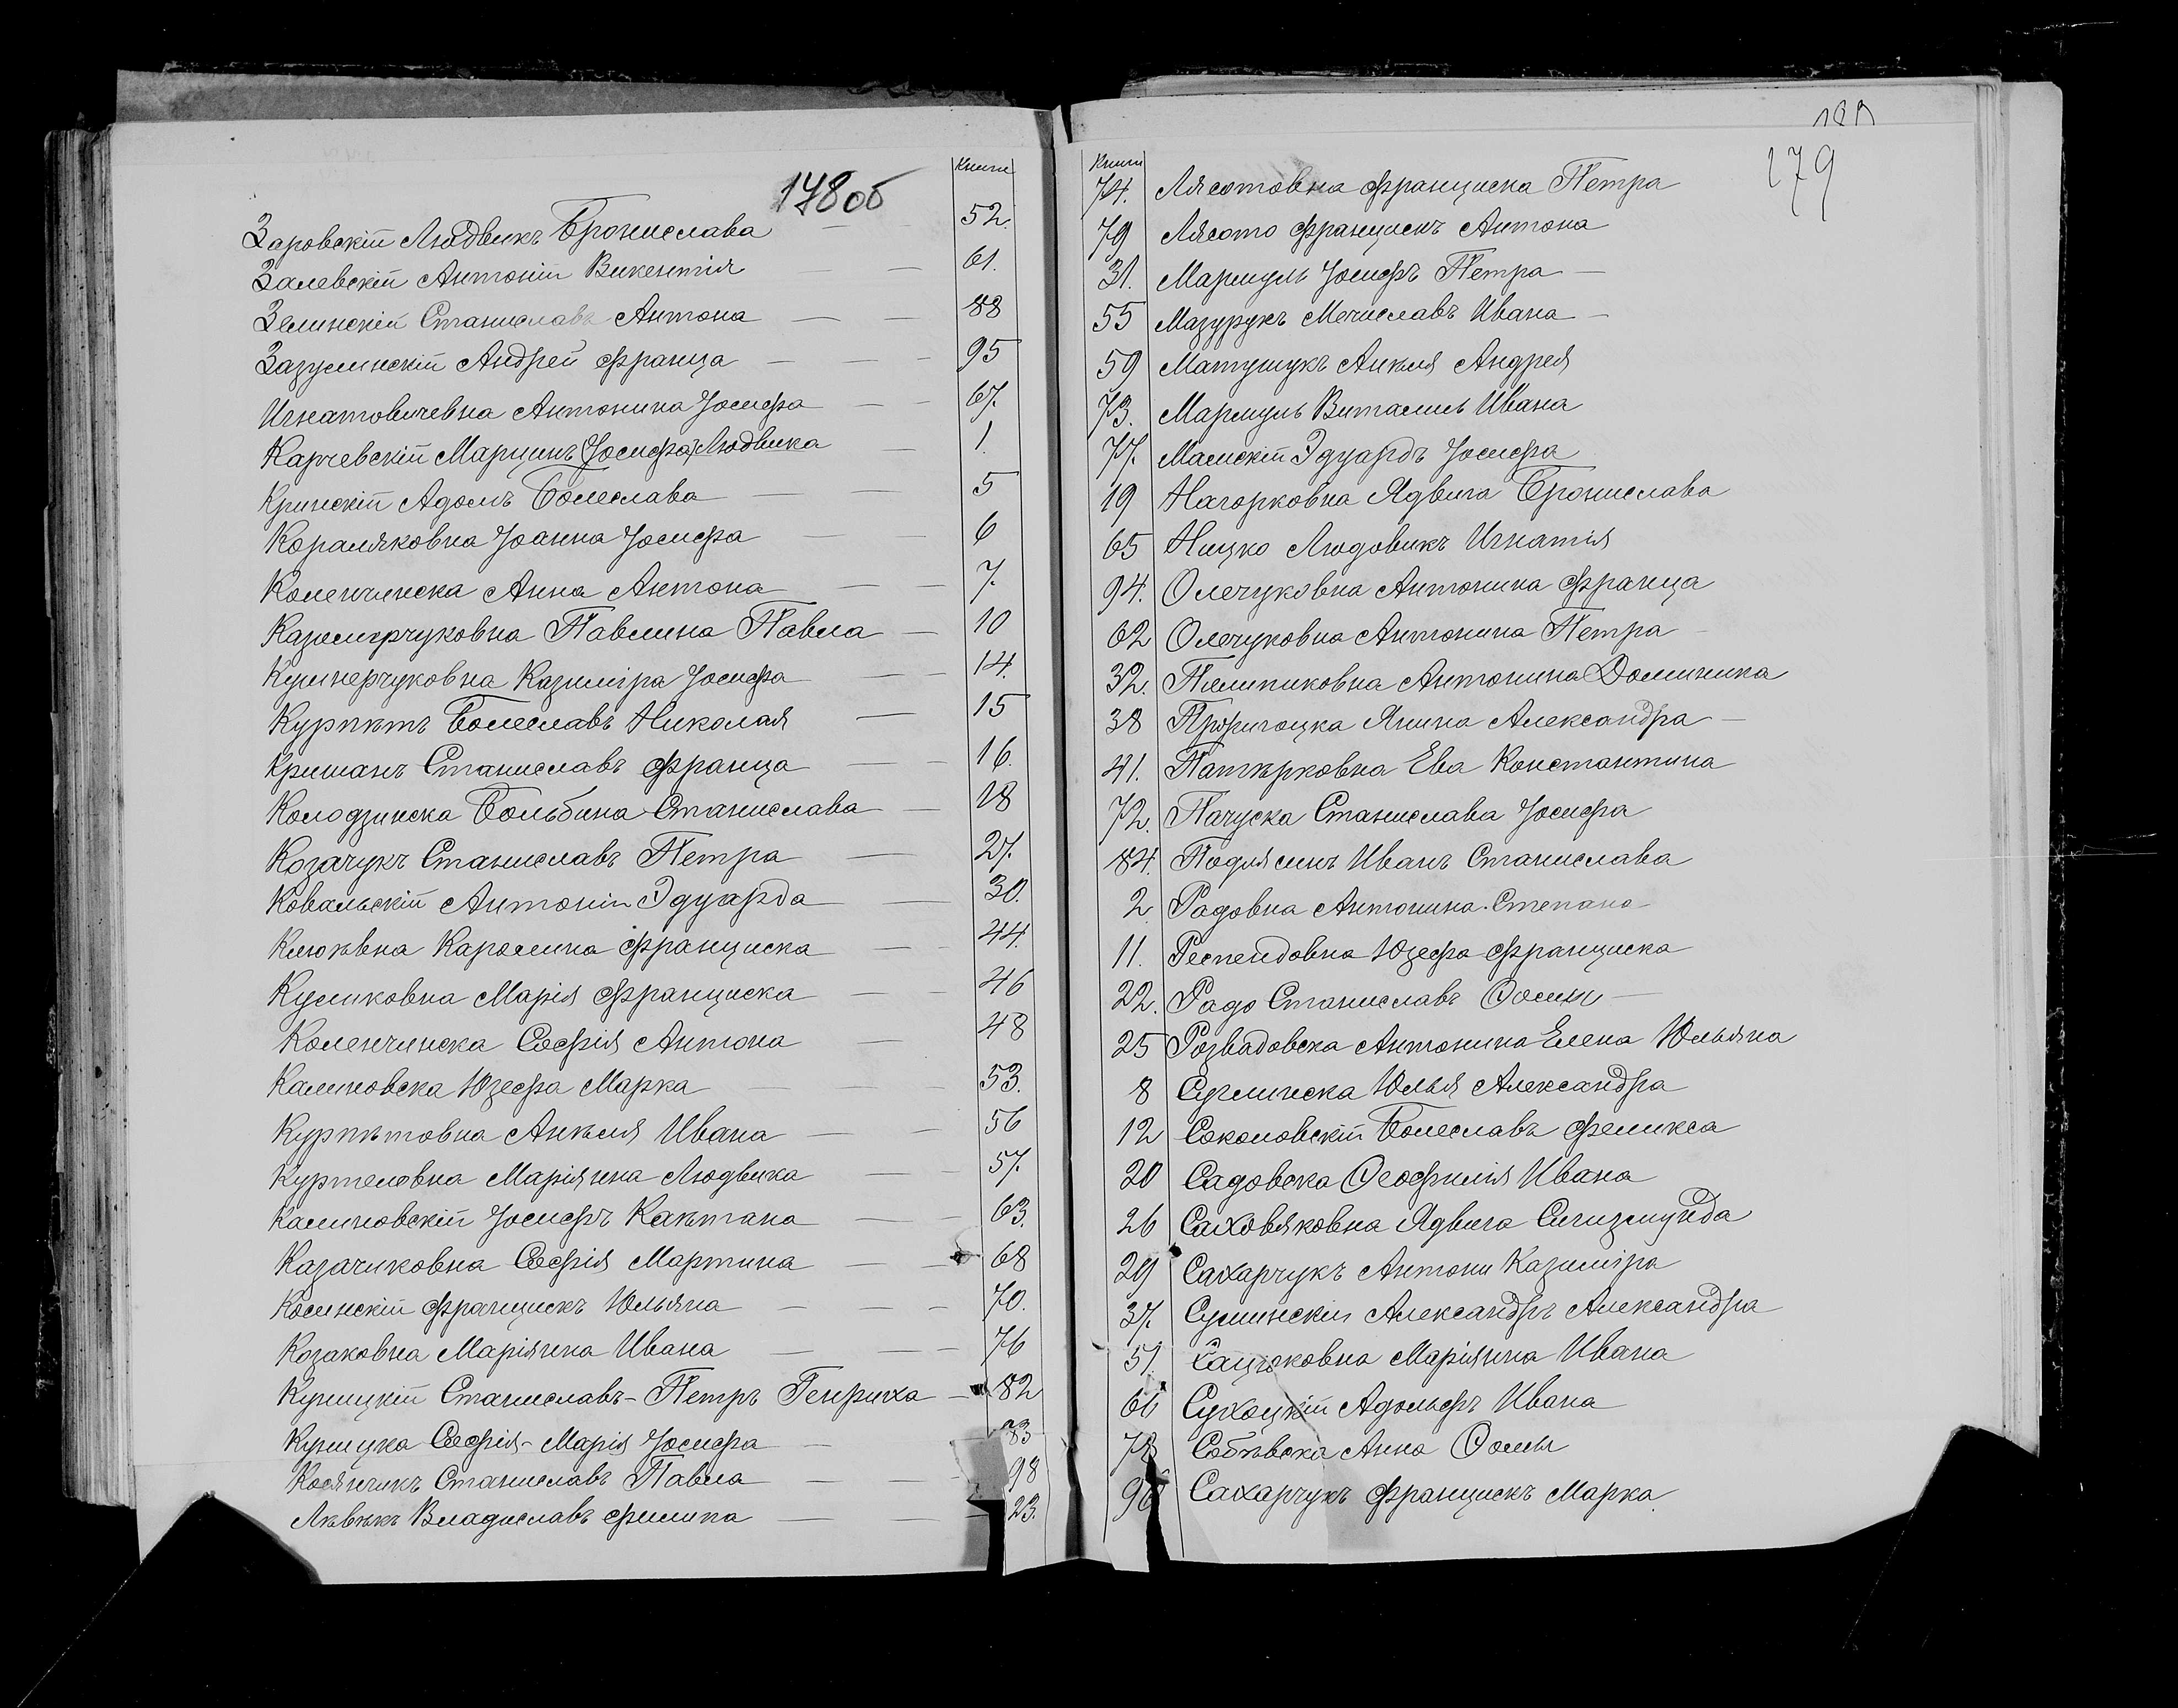 178об
Книги
Заровскій Людвикъ Бронислава — 52.
Залевскій Антоній Викентія — — 61.
Зелинскій Станиславъ Антона — — 88
Зазулинскій Андрей Франца — — — 95
Игнатовичевна Антонина Іосифа — — 67.
Карчевскій Марцинъ (Іосифа) Людвика — 1.
Кринскій Адомъ Болеслава — — 5
Кораляковна Іоанна Іосифа — — 6
Коленчинска Анна Антона — — 7.
Казомірчуковна Павлина Павла — 10
Кушнерчуковна Казиміра Іосифа — — 14.
Курпѣтъ Болеславъ Николая — 15
Кришанъ Станиславъ Франца — — 16.
Колодзинска Больбина Станислава — 18
Козачукъ Станиславъ Петра — 27.
Ковальскій Антоній Эдуарда — 30.
Клюквна Каролина Франциска — — 44.
Куликовна Марія Франциска — — 46
Коленчинска Софія Антона — 48
Калиновска Юзефа Марка — — — 53.
Курпѣтовна Анѣля Ивана — — 56
Куртеловна Маріянна Людвика — — 57.
Калиновскій Іосифъ Каѣтана — — 63.
Казачиковна Софія Мартина — — 68
Косинскій Францискъ Юльяна — — — 70.
Козаковна Маріянна Ивана — — — 76
Куницкій Станиславъ-Петръ Генриха — 82
Куницка Софія-Марія Іосифа — 83
Косянчикъ Станиславъ Павла — — — 98
Лѣвѣкъ Владиславъ Филипа — — — 23.
179
Книги
74. Лясотовна Франциска Петра
79 Лясото Францискъ Антона
31. Мармуль Іосифъ Петра —
55 Мазурукъ Мечиславъ Ивана —
59 Матушукъ Анѣля Андрея
73. Мармуль Витались Ивана
77. Малскій Эдуардъ Іосифа
19 Нагорковна Ядвига Бронислава
65 Ницко Людовикъ Игнатія
94. Олечуковна Антонина Франца
62 Олечуковна Антонина Петра —
32. Пилипиковна Антонина Доминика
38 Янина Александра —
41. Патѣрковна Ева Константина
72. Пачуска Станислава Іосифа
84. Подлясинъ Иванъ Станислава
2. Радовна Антонина Степана
11. Респендовна Юзефа Франциска
22. Радо Станиславъ Ѳомы —
25 Розвадовска Антонина Елена Юльяна
8 Суглинска Юлья Александра
12 Соколовскій Болеславъ Феликса
20 Садовска Ѳеофилія Ивана
26 Саховяковна Ядвига Сигизмунда
29 Сахарчукъ Антони Казиміра
37. Сулинскій Александръ Александра
51. Сацюковна Маріянна Ивана
66 Сухоцкій Адольфъ Ивана
78 Собѣвска Анна Ѳомы
96 Сахарчукъ Францискъ Марка